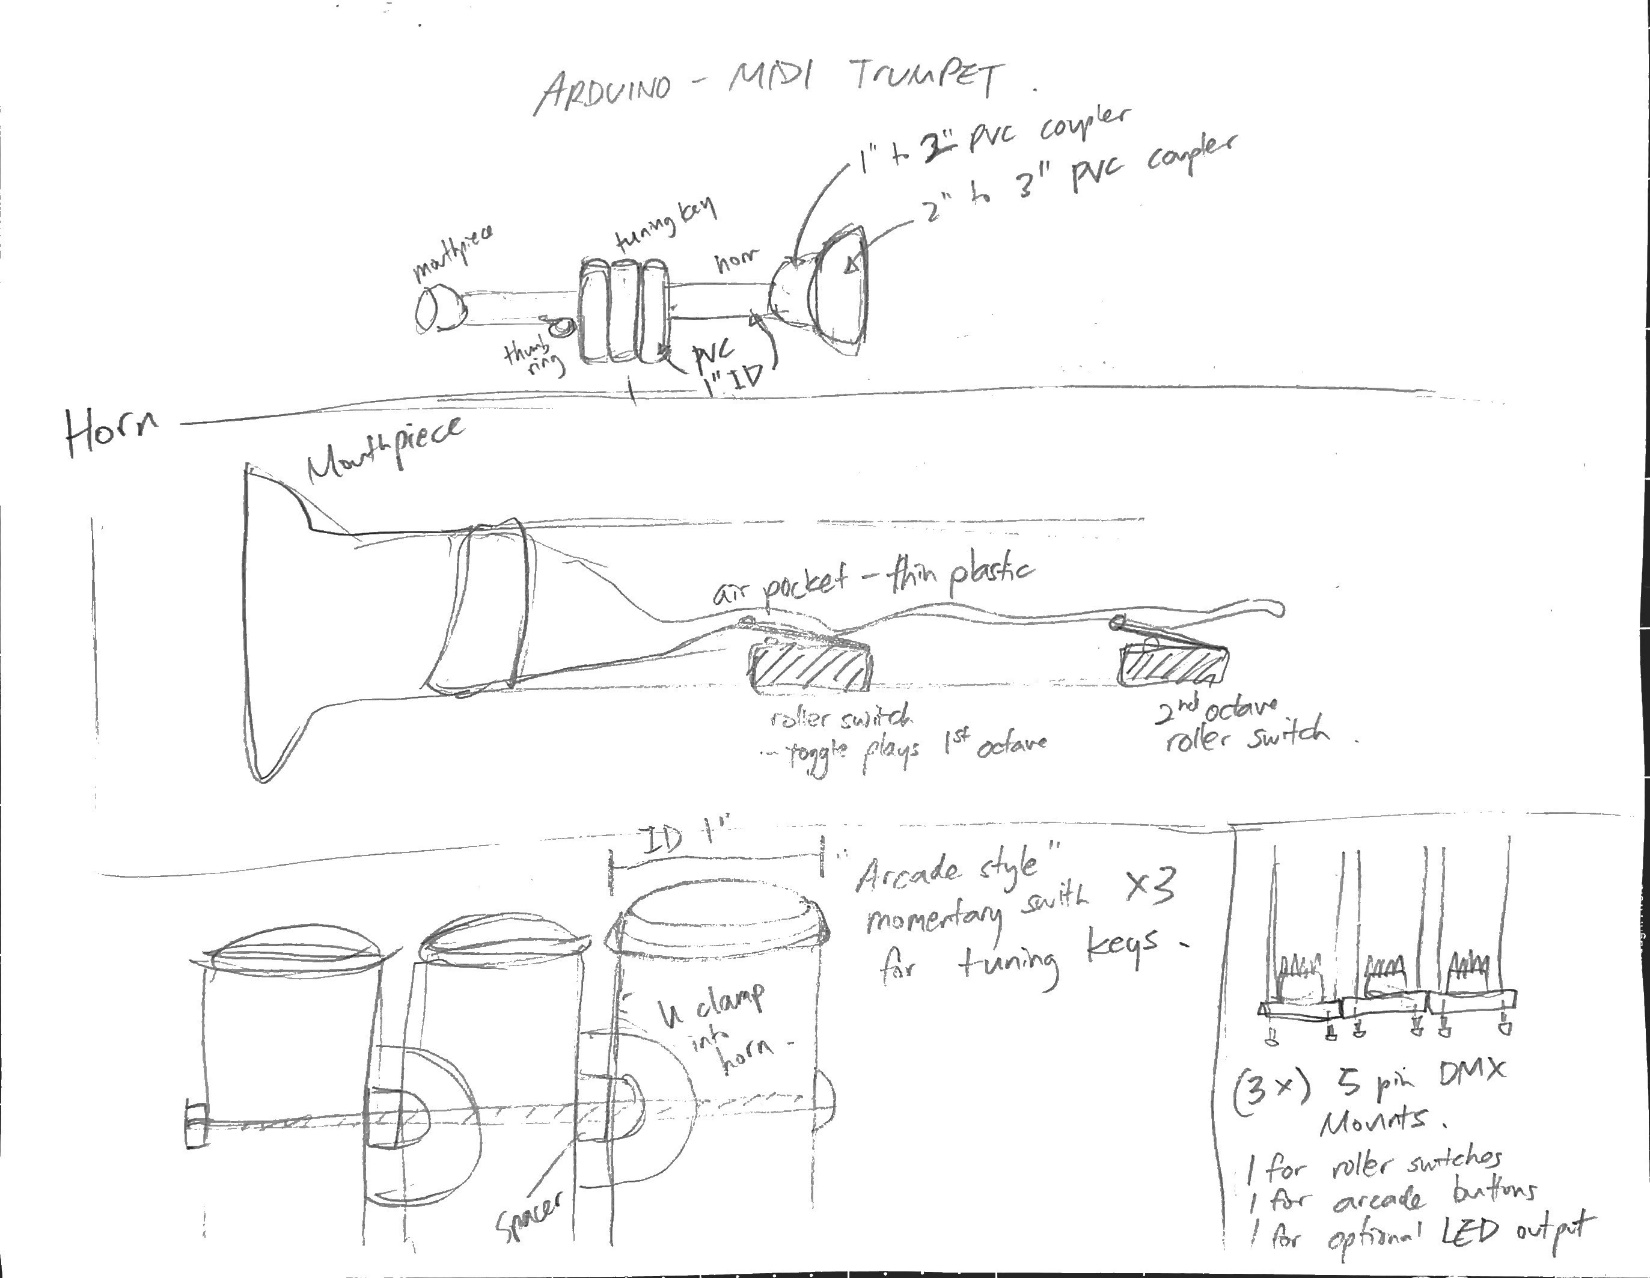 ARDUINO - MIDI TRUMPET.
1" to 2" PVC coupler
2" to 3" PVC coupler
mouthpiece
tuning key
horn
thumb
ring
PVC
1" ID
Horn
Mouthpiece
air pocket - thin plastic
roller switch
- toggle plays 1st octave
2nd octave
roller switch.
ID 1"
"Arcade style"
momentary swith x3
for tuning keys.
U clamp
into
horn -
spacer
(3x) 5 pin DMX
Mounts.
1 for roller switches
1 for arcade buttons
1 for optional LED output